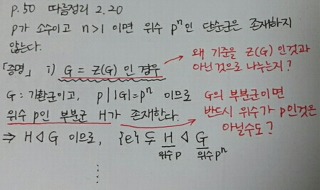 p.50 따름정리 2.20
p가 소수이고, n>1 이면 위수 pⁿ인 단순군은 존재하지
않는다.
「증명」 i) G = Z(G) 인 경우
왜 기준을 Z(G) 인것과
아닌것으로 나누는지?
G : 가환군이고, p | |G|=pⁿ 이므로
위수 p인 부분군 H가 존재한다.
G의 부분군이면
반드시 위수가 p인것은
아닐수도?
⇒ H ◁ G 이므로, {e} ⊊ H ◁ G
위수 p 위수 pⁿ
⋮